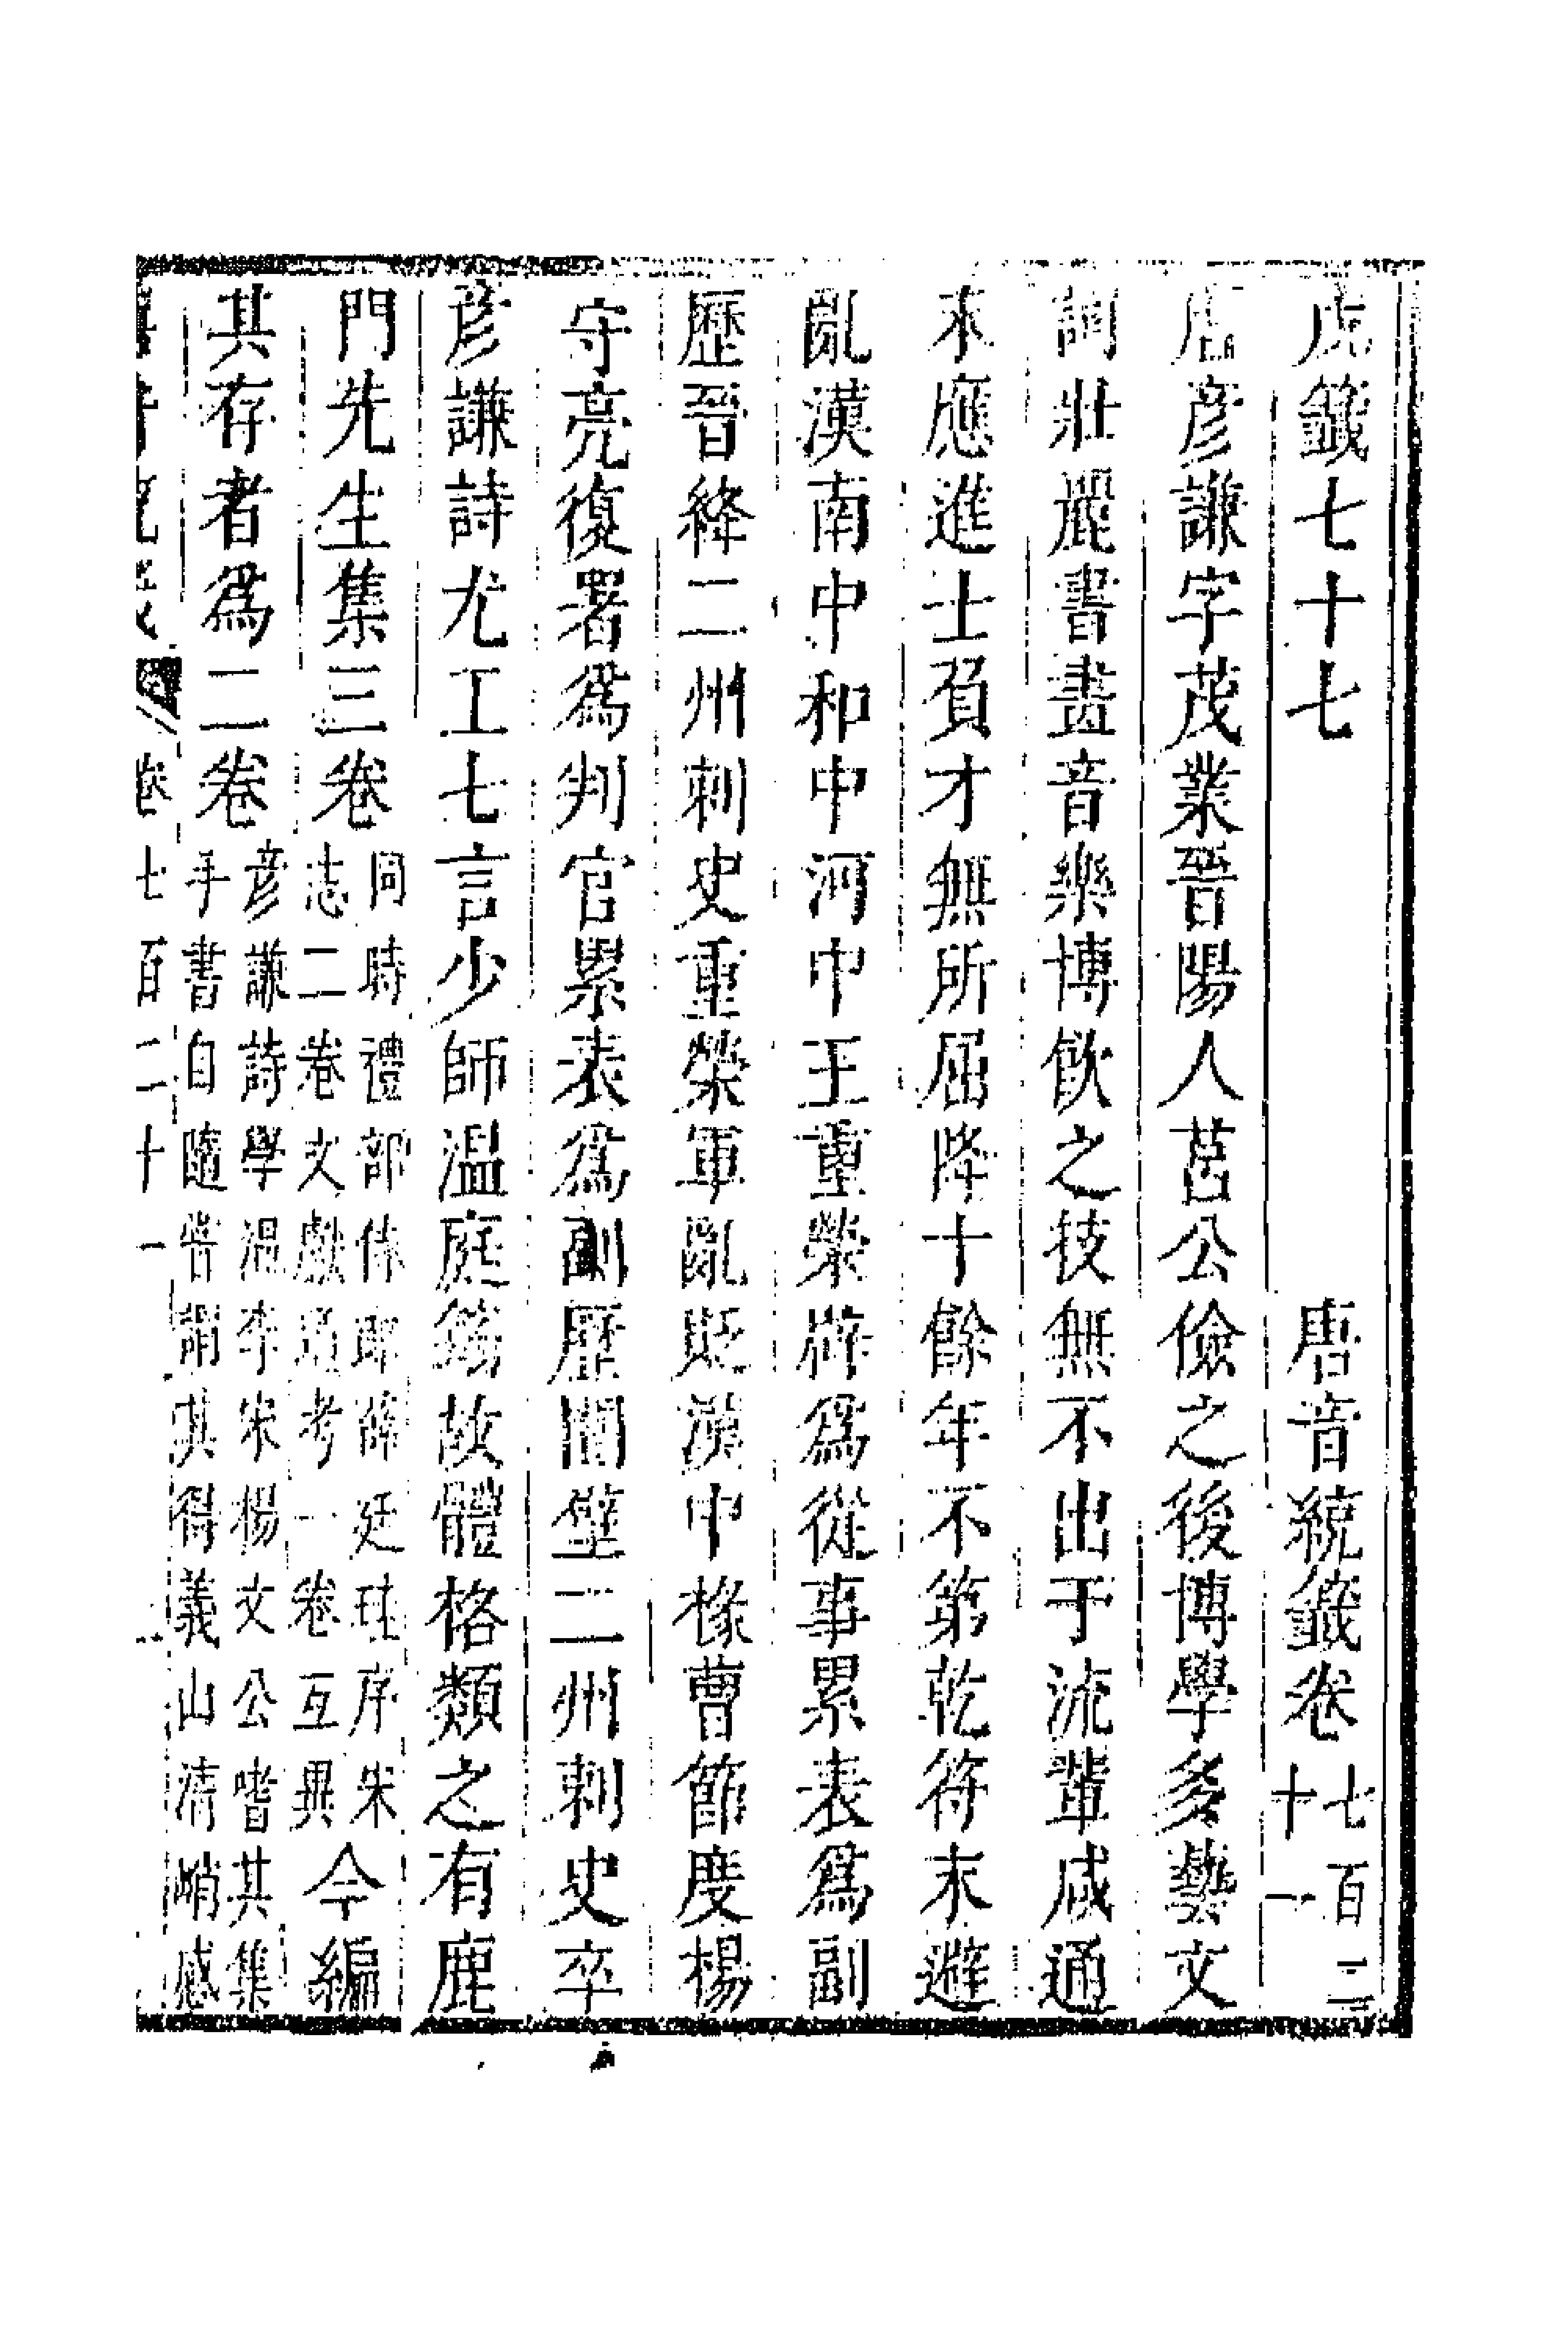 戊籤七十七 唐音統籤卷七百二十一
唐彥謙字茂業晉陽人莒公儉之後博學多藝文
詞壯麗書畫音樂博飲之技無不出于流輩咸通
末應進士負才無所屈降十餘年不第乾符末避
亂漢南中和中河中王重榮辟爲從事累表爲副
歷晉絳二州刺史重榮軍亂貶漢中掾曹節度楊
守亮復署爲判官累表爲副歷閬壁二州刺史卒
彥謙詩尤工七言少師溫庭筠故體格類之有鹿
門先生集三卷同時禮部侍郎薛廷珪序宋志二卷文獻通考一卷互異今編
其存者爲二卷彥謙詩學溫李宋楊文公嗜其集手書自隨嘗謂其得義山清峭感
卷七百二十一